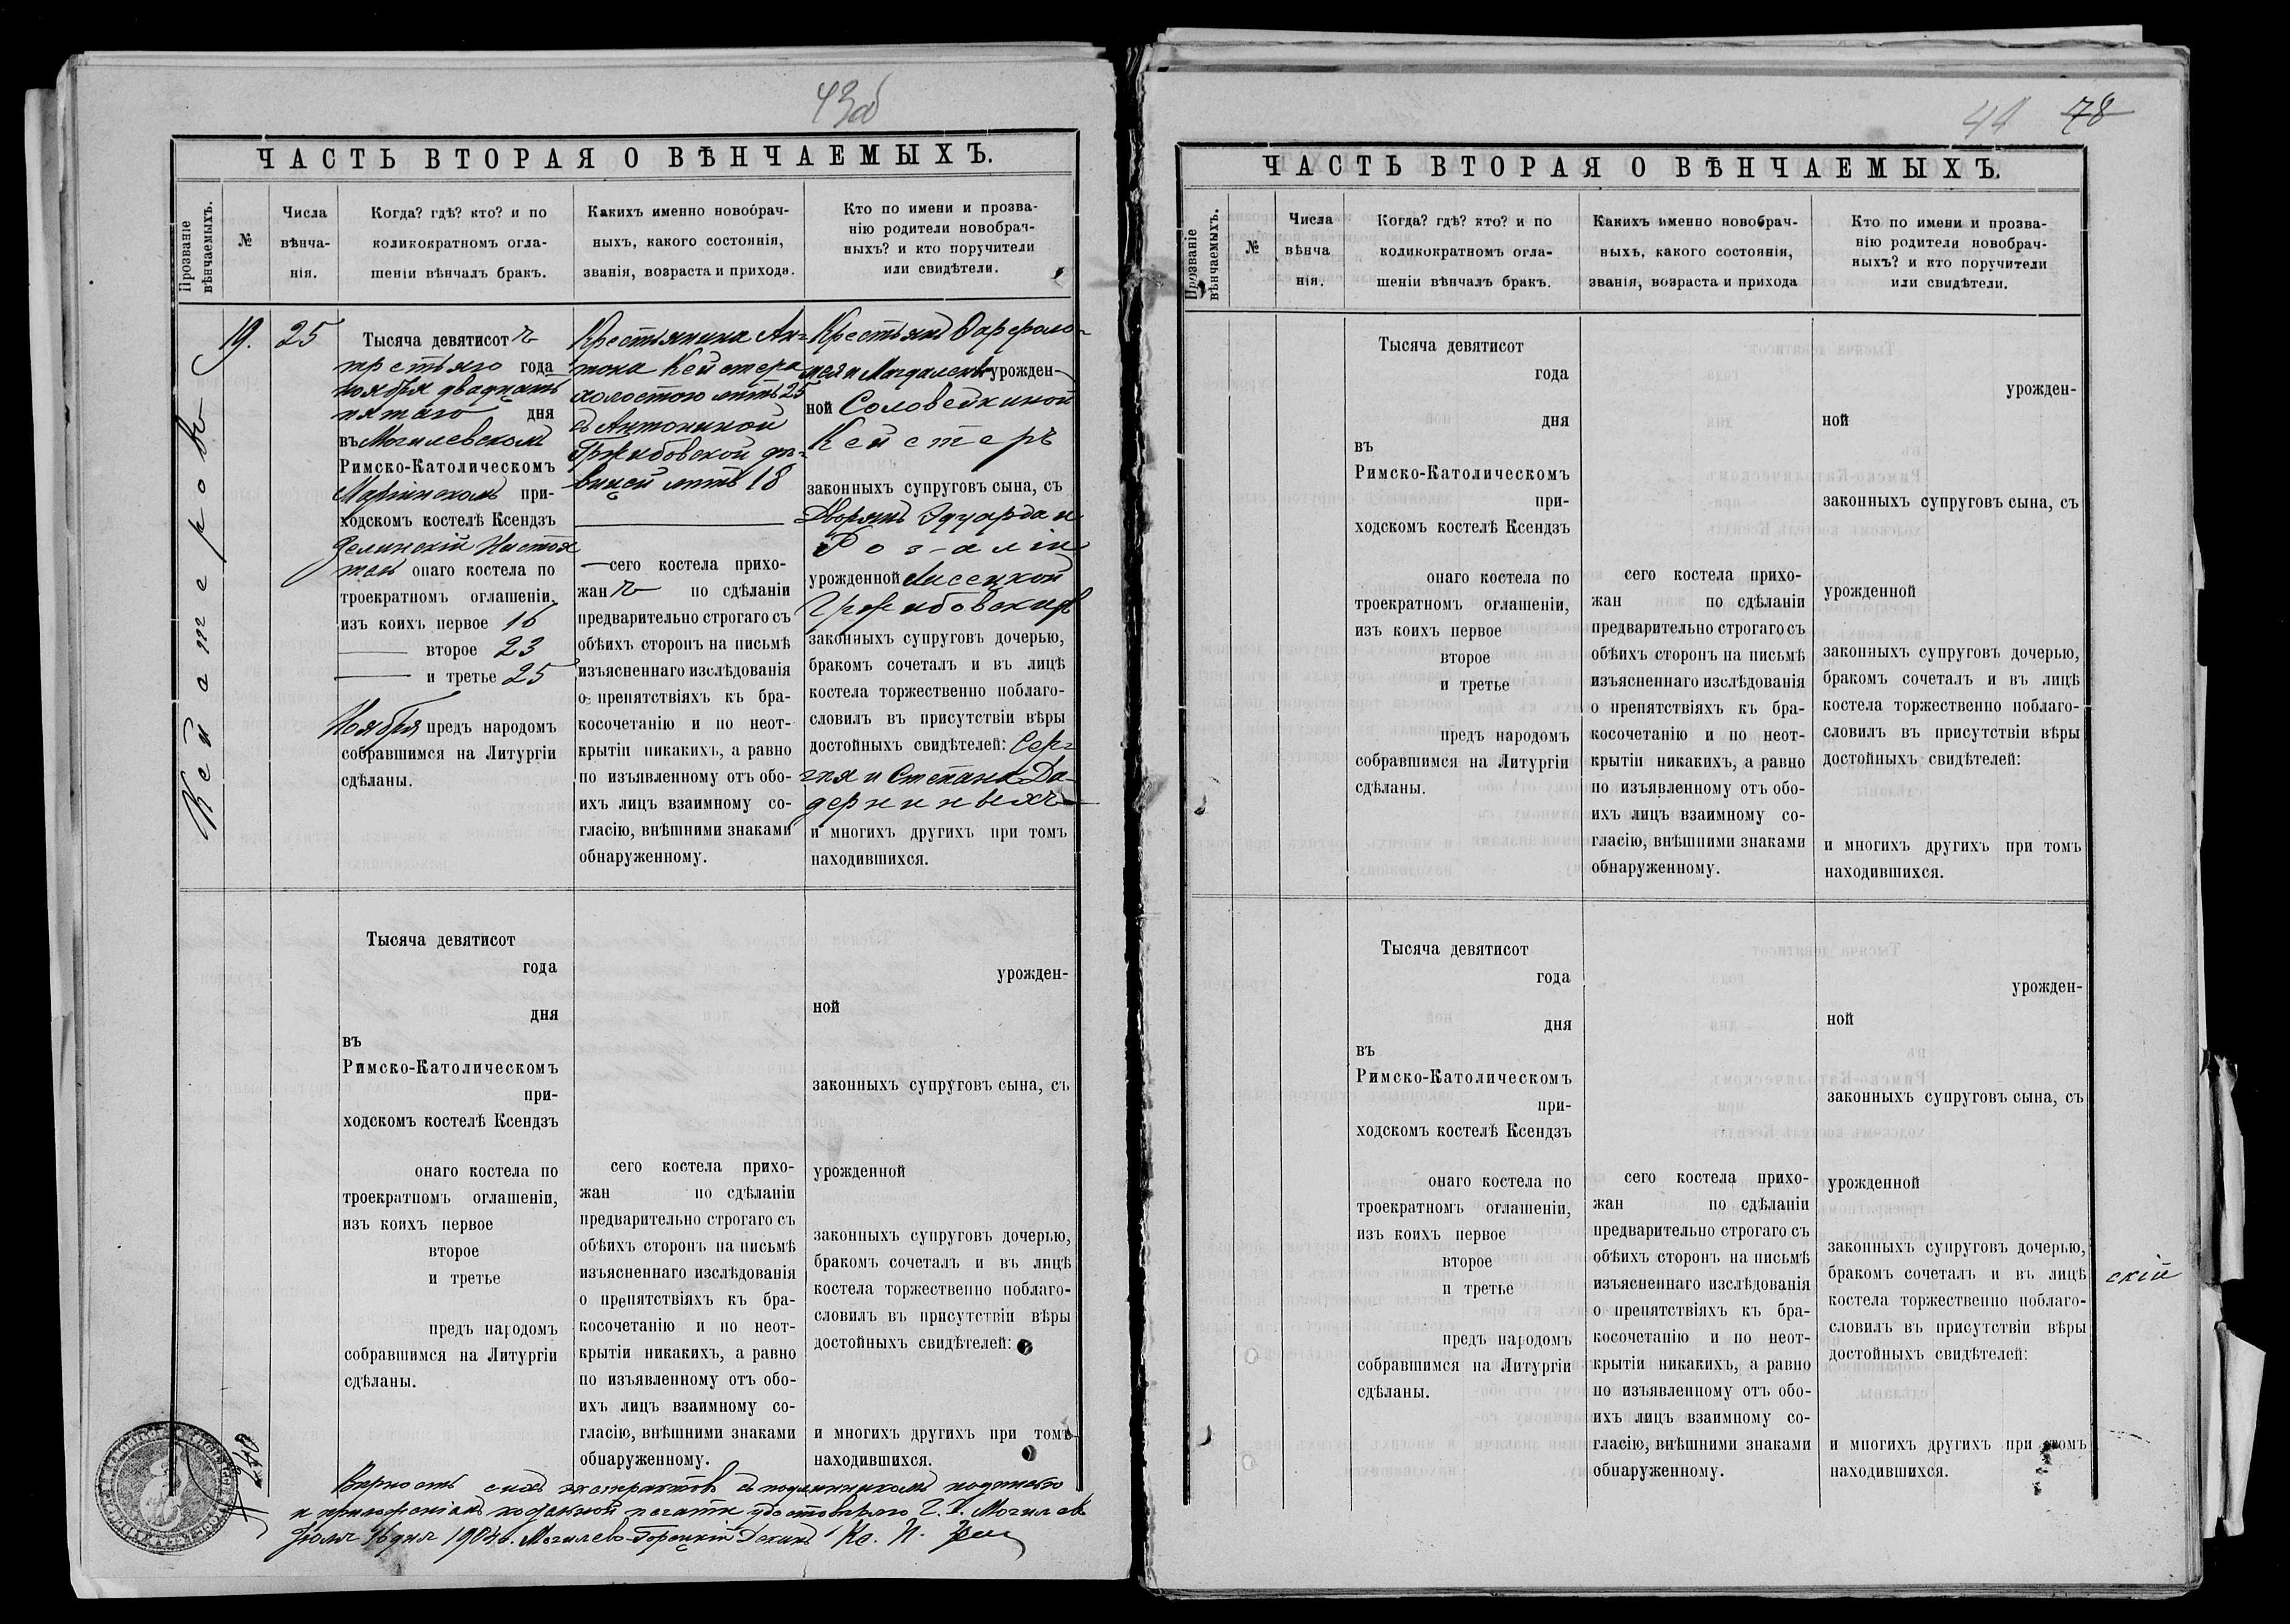 43об
ЧАСТЬ ВТОРАЯ О ВѢНЧАЕМЫХЪ.
Прозваніе вѣнчаемыхъ.
№
Числа
вѣнча-
нія.
Когда? гдѣ? кто? и по
коликократномъ огла-
шеніи вѣнчалъ бракъ.
Какихъ именно новобрач-
ныхъ, какого состоянія,
званія, возраста и прихода.
Кто по имени и прозва-
нію родители новобрач-
ныхъ? и кто поручители
или свидѣтели.
Кейстеровъ
19.
25
Тысяча девятисотъ
третьяго года
ноября двадцать
пятаго дня
въ Могилевскомъ
Римско-Католическомъ
Маріинскомъ при-
ходскомъ костелѣ Ксендзъ
Настоя
тель онаго костела по
троекратномъ оглашеніи,
изъ коихъ первое 16
второе 23
и третье 25
Ноября предъ народомъ
собравшимся на Литургіи
сдѣланы.
Крестьянина Ан-
тона Кейстера
холостого лѣтъ 25
съ Антониной
Гржибовской дѣ-
вицей лѣтъ 18
сего костела прихо-
жанъ по сдѣланіи
предварительно строгаго съ
обѣихъ сторонъ на письмѣ
изъясненнаго изслѣдованія
о препятствіяхъ къ бра-
косочетанію и по неот-
крытіи никакихъ, а равно
по изъявленному отъ обо-
ихъ лицъ взаимному со-
гласію, внѣшними знаками
обнаруженному.
Крестьянъ Варфоло-
мея и Магдалены урожден-
ной Соловейкиной
Кейстеръ
законныхъ супруговъ сына, съ
Дворянъ Эдуарда и
Розаліи
урожденной Лисецкой
Гржибовскихъ
законныхъ супруговъ дочерью,
бракомъ сочеталъ и въ лицѣ
костела торжественно поблаго-
словилъ въ присутствіи вѣры
достойныхъ свидѣтелей: Сер-
гѣя и Степана Да-
дерниныхъ
и многихъ другихъ при томъ
находившихся.
Тысяча девятисот
года
дня
въ
Римско-Католическомъ
при-
ходскомъ костелѣ Ксендзъ
онаго костела по
троекратномъ оглашеніи,
изъ коихъ первое
второе
и третье
предъ народомъ
собравшимся на Литургіи
сдѣланы.
сего костела прихо-
жан по сдѣланіи
предварительно строгаго съ
обѣихъ сторонъ на письмѣ
изъясненнаго изслѣдованія
о препятствіяхъ къ бра-
косочетанію и по неот-
крытіи никакихъ, а равно
по изъявленному отъ обо-
ихъ лицъ взаимному со-
гласію, внѣшними знаками
обнаруженному.
урожден-
ной
законныхъ супруговъ сына, съ
урожденной
законныхъ супруговъ дочерью,
бракомъ сочеталъ и въ лицѣ
костела торжественно поблаго-
словилъ въ присутствіи вѣры
достойныхъ свидѣтелей:
и многихъ другихъ при томъ
находившихся.
Вѣрность сихъ экстрактовъ съ подлинникомъ подписью
и приложеніемъ печати удостовѣряю Г. Могилевъ
1904 г. Могилево-Горецкій Деканъ Кс.
44 78
ЧАСТЬ ВТОРАЯ О ВѢНЧАЕМЫХЪ.
Прозваніе вѣнчаемыхъ.
№
Числа
вѣнча
нія.
Когда? гдѣ? кто? и по
коликократномъ огла-
шеніи вѣнчалъ бракъ.
Какихъ именно новобрач-
ныхъ, какого состоянія,
званія, возраста и прихода
Кто по имени и прозва-
нію родители новобрач-
ныхъ? и кто поручители
или свидѣтели.
Тысяча девятисот
года
дня
въ
Римско-Католическомъ
при-
ходскомъ костелѣ Ксендзъ
онаго костела по
троекратномъ оглашеніи,
изъ коихъ первое
второе
и третье
предъ народомъ
собравшимся на Литургіи
сдѣланы.
сего костела прихо-
жан по сдѣланіи
предварительно строгаго съ
обѣихъ сторонъ на письмѣ
изъясненнаго изслѣдованія
о препятствіяхъ къ бра-
косочетанію и по неот-
крытіи никакихъ, а равно
по изъявленному отъ обо-
ихъ лицъ взаимному со-
гласію, внѣшними знаками
обнаруженному.
урожден-
ной
законныхъ супруговъ сына, съ
урожденной
законныхъ супруговъ дочерью,
бракомъ сочеталъ и въ лицѣ
костела торжественно поблаго-
словилъ въ присутствіи вѣры
достойныхъ свидѣтелей:
и многихъ другихъ при томъ
находившихся.
Тысяча девятисот
года
дня
въ
Римско-Католическомъ
при-
ходскомъ костелѣ Ксендзъ
онаго костела по
троекратномъ оглашеніи,
изъ коихъ первое
второе
и третье
предъ народомъ
собравшимся на Литургіи
сдѣланы.
сего костела прихо-
жан по сдѣланіи
предварительно строгаго съ
обѣихъ сторонъ на письмѣ
изъясненнаго изслѣдованія
о препятствіяхъ къ бра-
косочетанію и по неот-
крытіи никакихъ, а равно
по изъявленному отъ обо-
ихъ лицъ взаимному со-
гласію, внѣшними знаками
обнаруженному.
урожден-
ной
законныхъ супруговъ сына, съ
урожденной
законныхъ супруговъ дочерью,
бракомъ сочеталъ и въ лицѣ
костела торжественно поблаго-
словилъ въ присутствіи вѣры
достойныхъ свидѣтелей:
и многихъ другихъ при томъ
находившихся.
скій